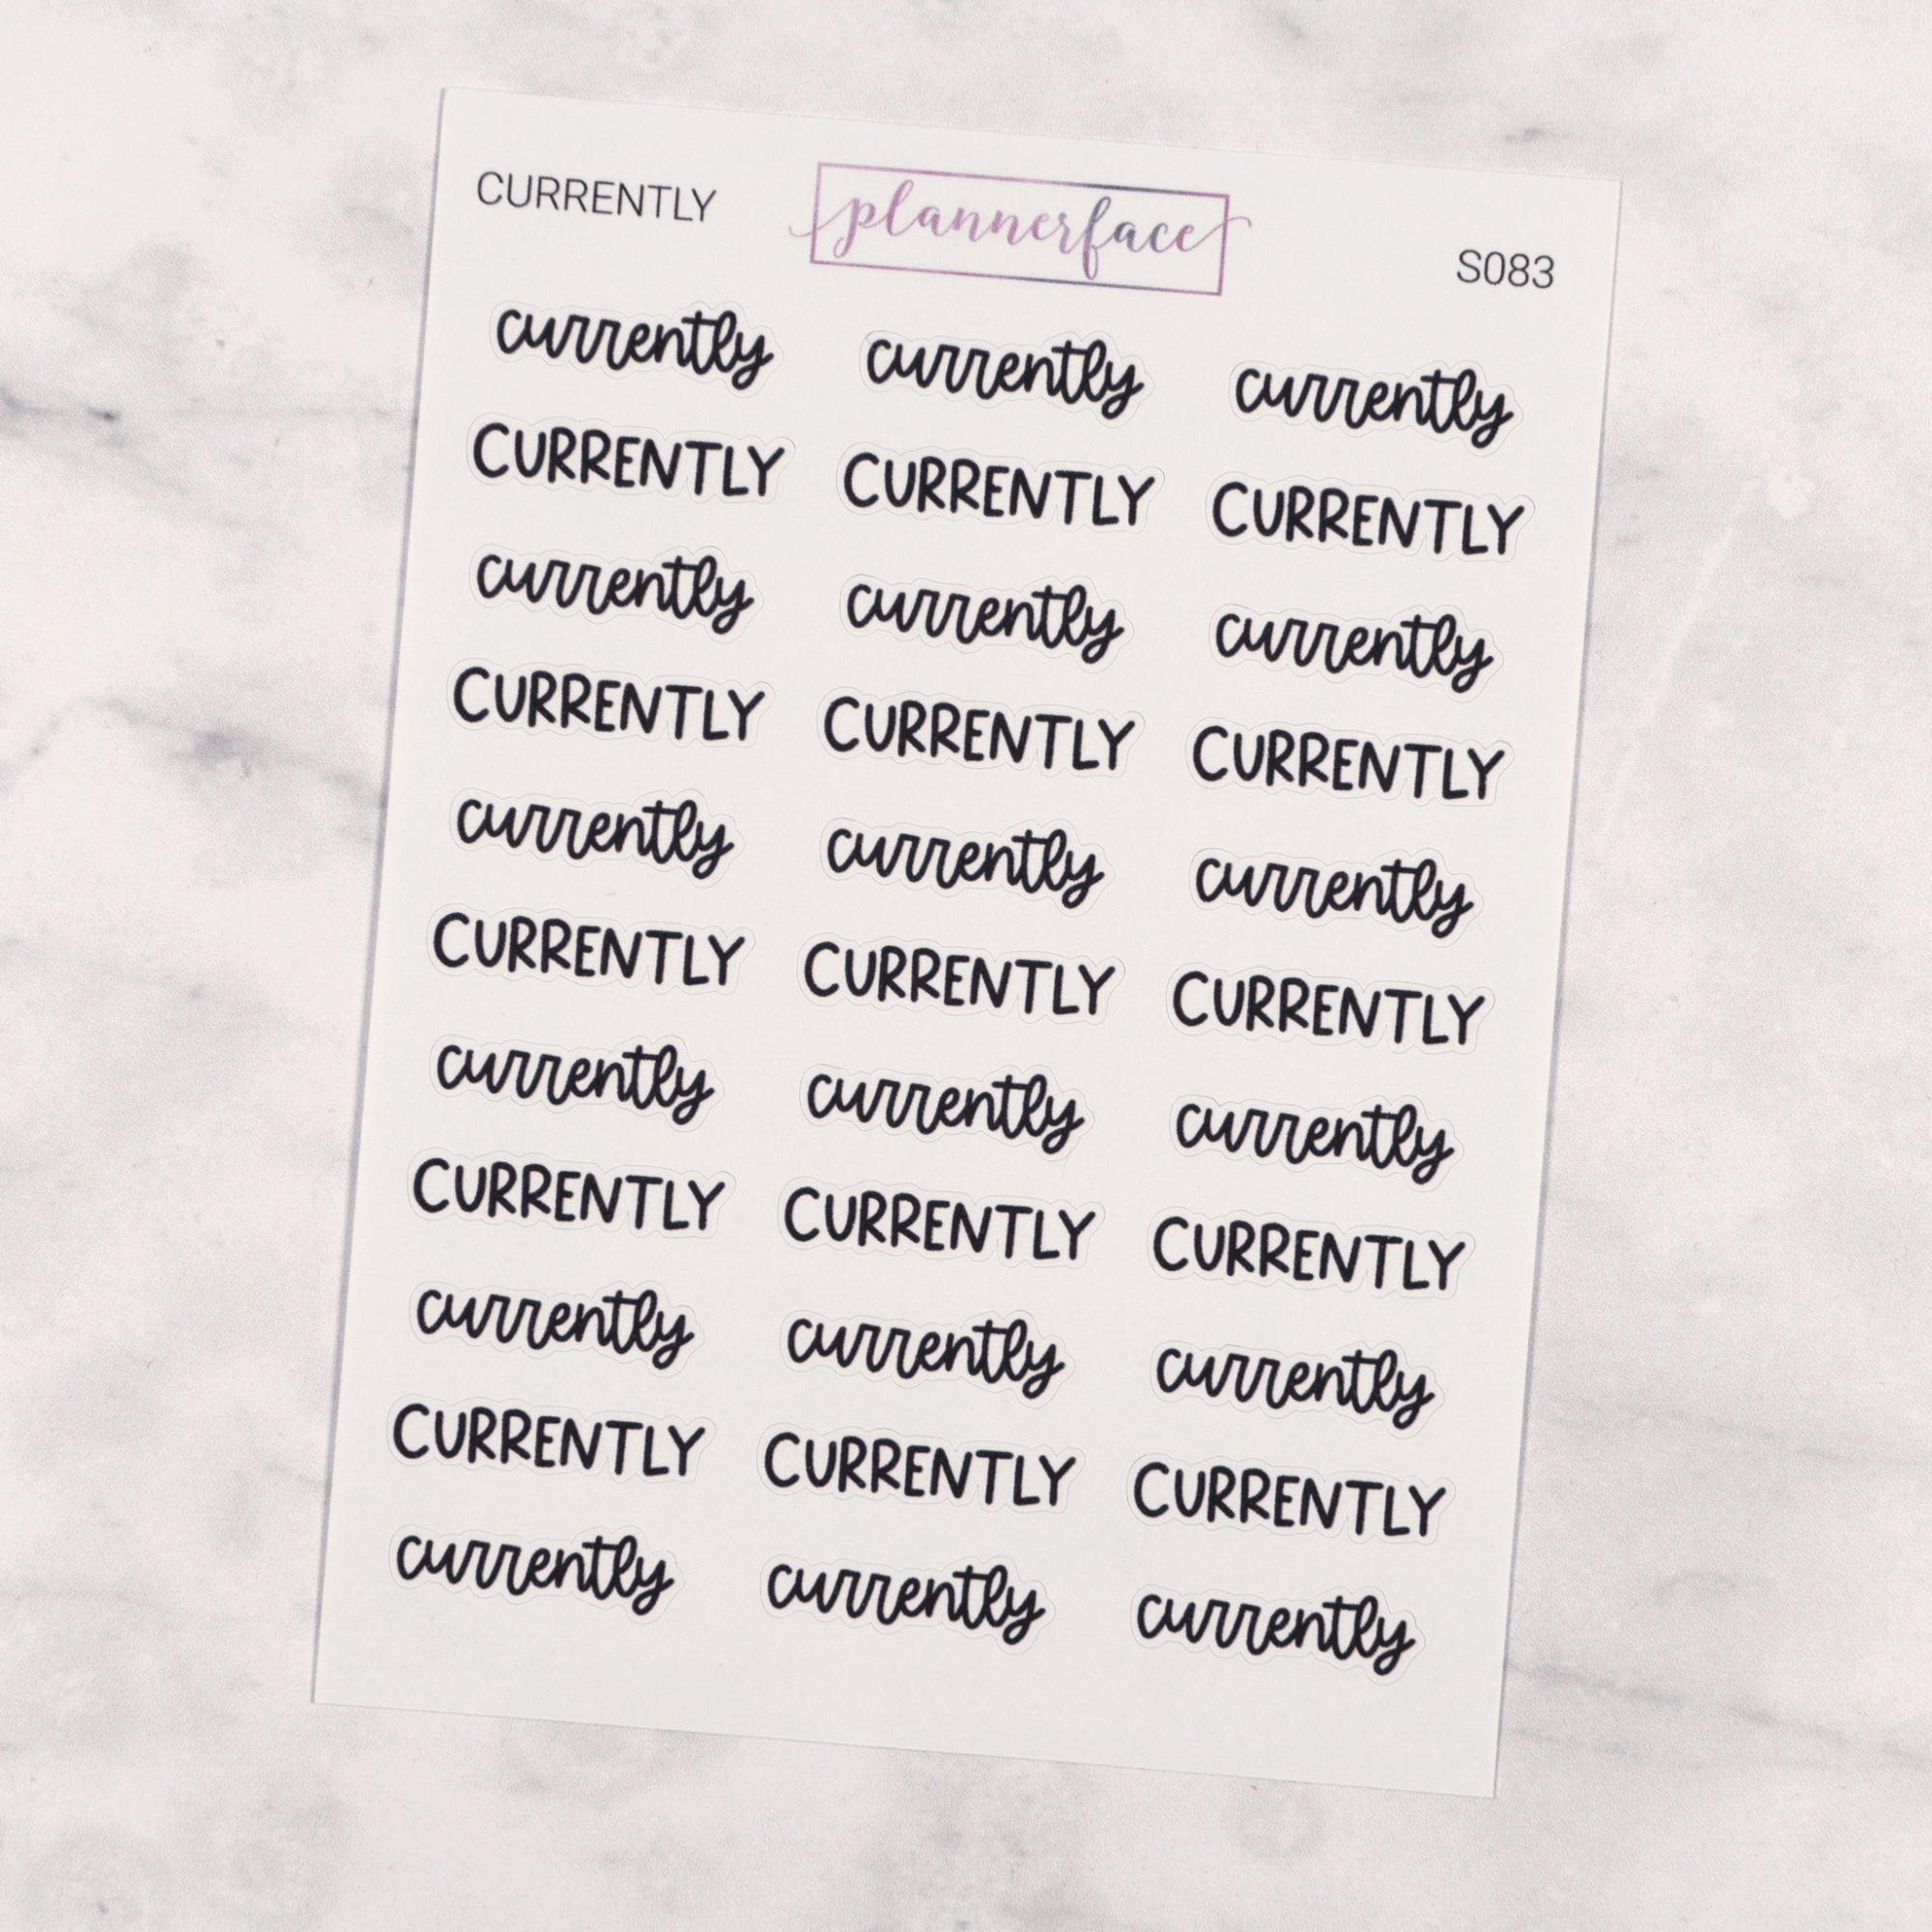 CURRENTLY plannerface S083
currently currently currently
CURRENTLY CURRENTLY CURRENTLY
currently currently currently
CURRENTLY CURRENTLY CURRENTLY
currently currently currently
CURRENTLY CURRENTLY CURRENTLY
currently currently currently
CURRENTLY CURRENTLY CURRENTLY
currently currently currently
CURRENTLY CURRENTLY CURRENTLY
currently currently currently